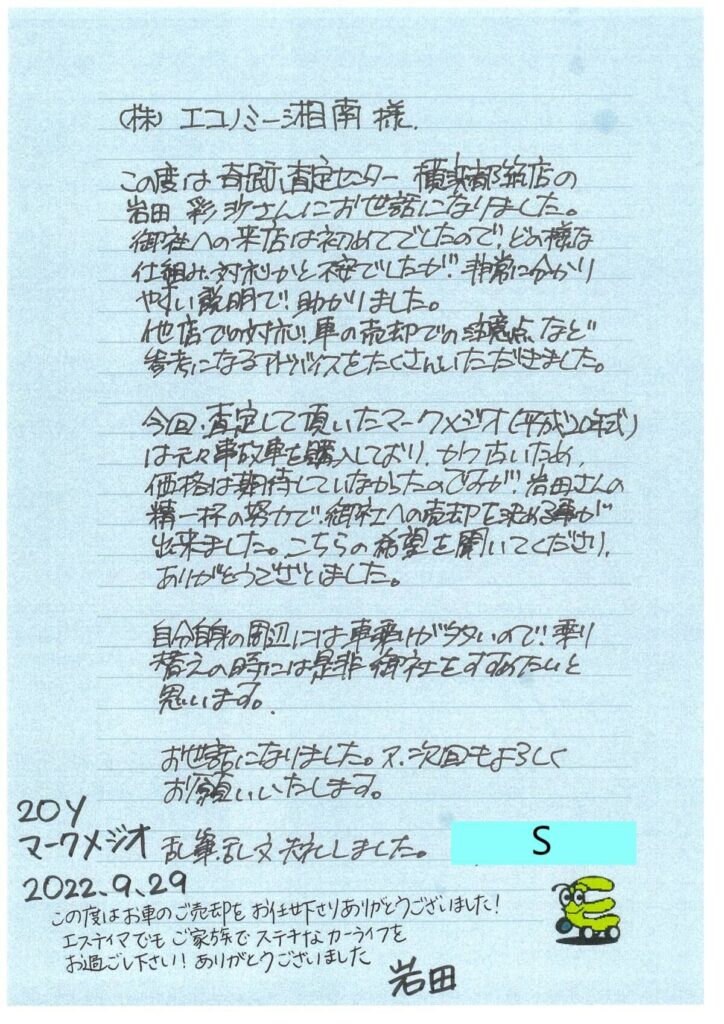 (株) エコノミー湘南 様.
この度は 奇跡の査定センター 横浜都筑店の
岩田 彩沙さんにお世話になりました。
御社への来店は初めてでしたので、どの様な
仕組み、対応かと不安でしたが、非常に分かり
やすい説明で、助かりました。
他店での対応、車の売却での注意点など
参考になるアドバイスをたくさんいただきました。
今回、査定して頂いたマークメジオ(平成20年式)
は元々事故車を購入しており、かつ古いため、
価格は期待していなかったのですが、岩田さんの
精一杯の努力で、御社への売却を決める事が
出来ました。こちらの希望を聞いてくださり、
ありがとうございました。
自分自身の周辺には車乗りが多いので、乗り
替えの時には是非御社をすすめたいと
思います。
お世話になりました。又、次回もよろしく
お願いいたします。
乱筆、乱文失礼しました。
S
20Y
マークメジオ
2022.9.29
この度はお車のご売却をお任せ下さりありがとうございました!
エスティマでもご家族でステキなカーライフを
お過ごし下さい!ありがとうございました
岩田